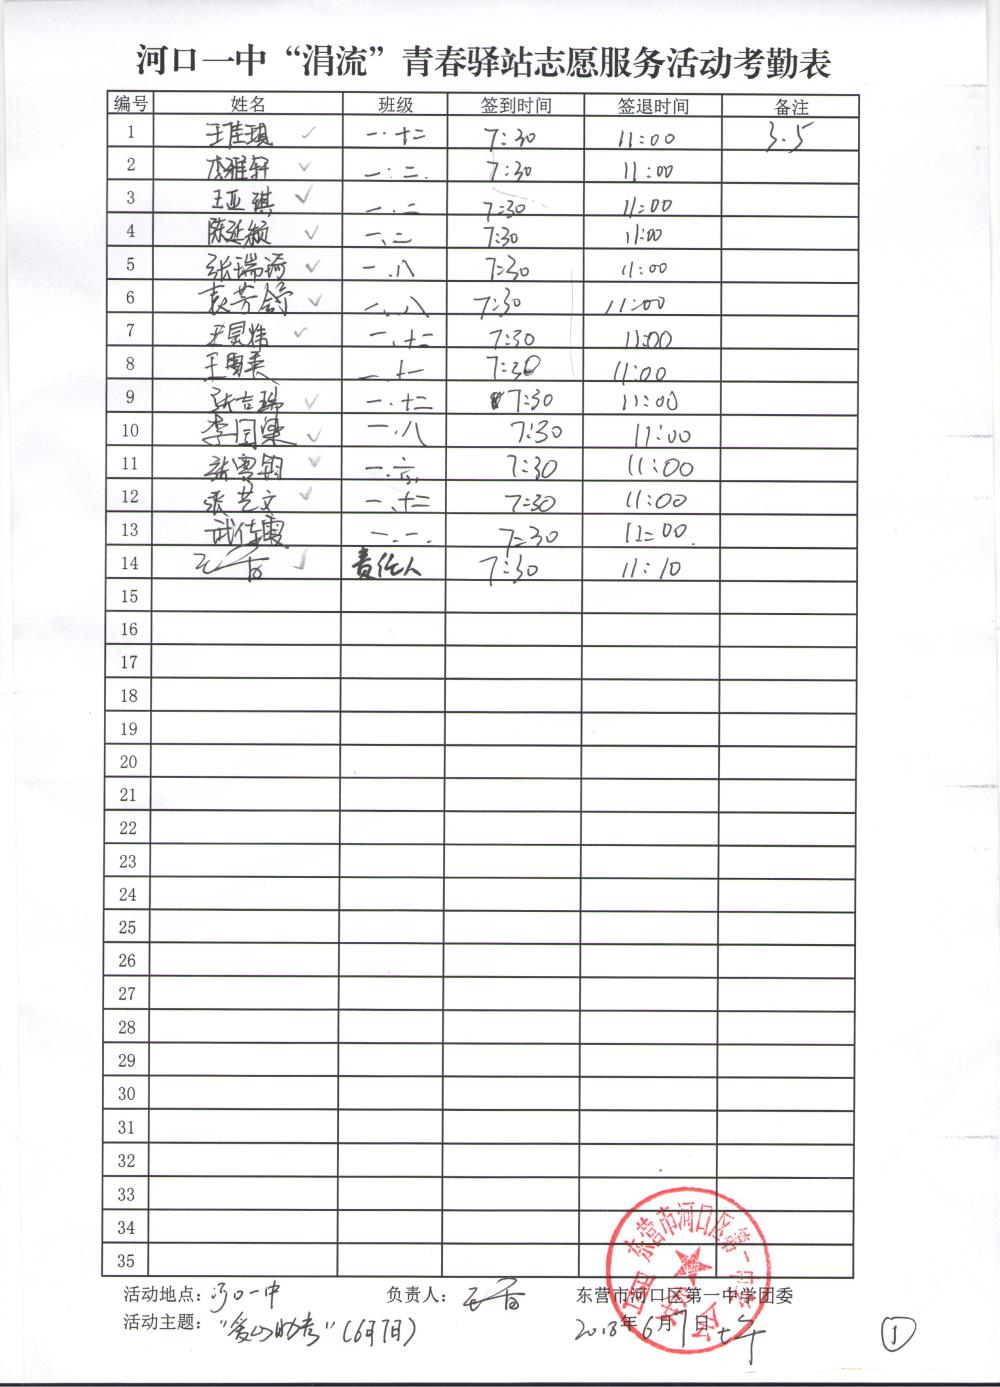 河口一中“涓流”青春驿站志愿服务活动考勤表
编号 姓名 班级 签到时间 签退时间 备注
1 王佳琪 一.十二 7:30 11:00 3.5
2 李雅轩 一.二. 7:30 11:00
3 王亚琪 一.二 7:30 11:00
4 陈延颖 一、二 7:30 11:00
5 张瑞琦 一.八 7:30 11:00
6 袁芳舒 一.八 7:30 11:00
7 7:30 11:00
8 一.十一 7:30 11:00
9 张吉瑞 一.十二 7:30 11:00
10 一.八 7:30 11:00
11 张雪钧 一.六 7:30 11:00
12 张艺文 一.十二 7:30 11:00
13 武佳霞 一.一. 7:30 11:00.
14 责任人 7:30 11:10
15
16
17
18
19
20
21
22
23
24
25
26
27
28
29
30
31
32
33
34
35
活动地点：河口一中 负责人： 东营市河口区第一中学团委
活动主题：“爱心助考”（6月7日） 2018年6月7日上午
①